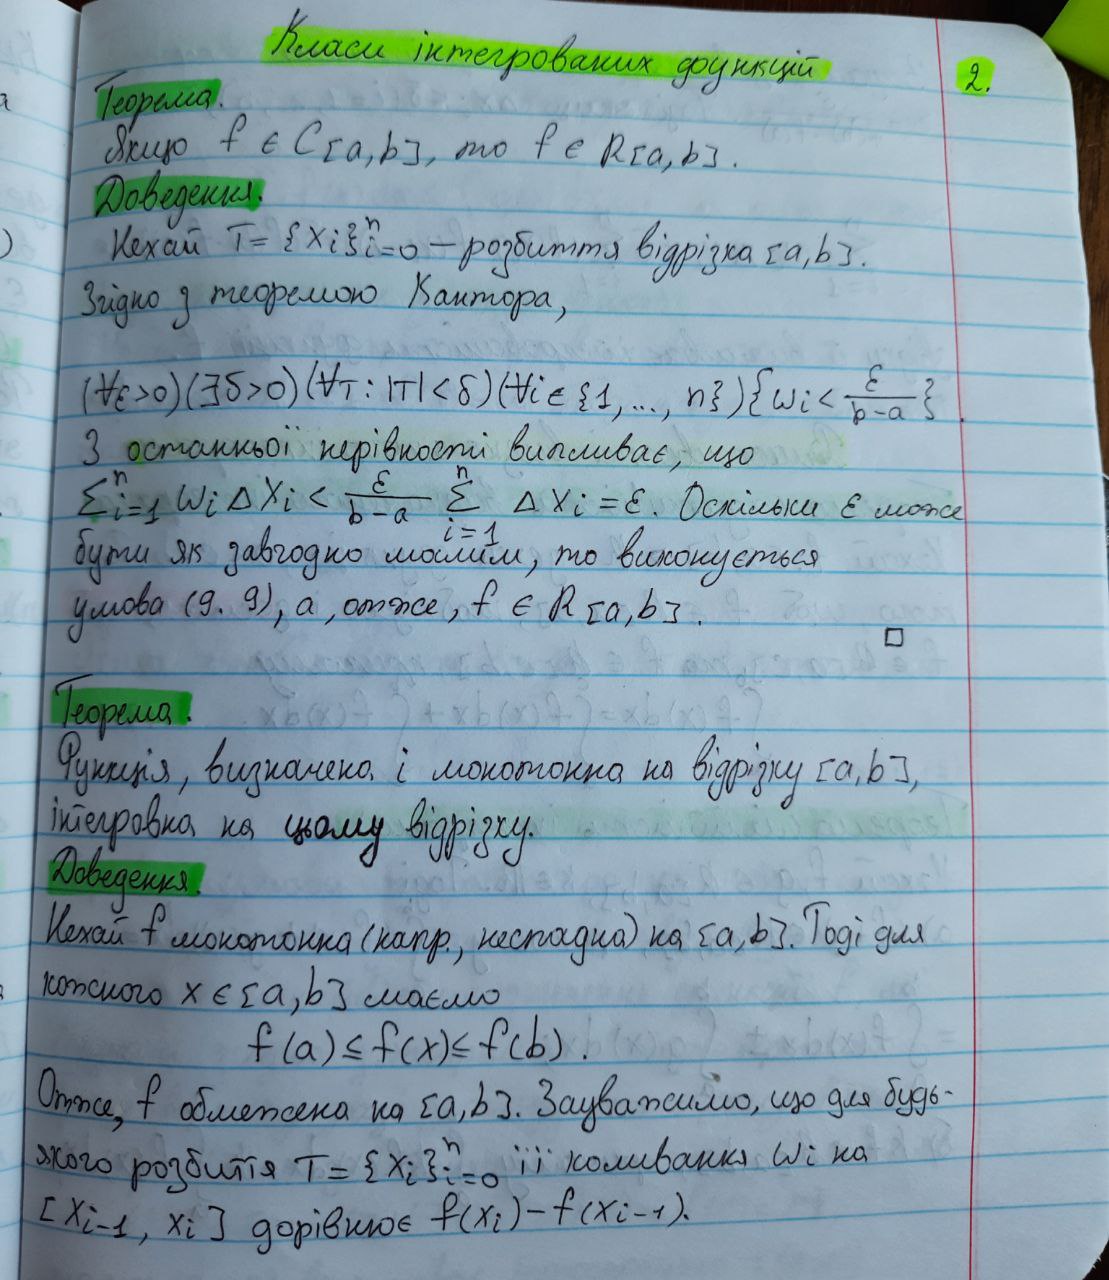 Класи інтегрованих функцій
2.
Теорема.
Якщо f ∈ C[a,b], то f ∈ R[a,b].
Доведення.
Нехай T = {xᵢ}ⁿᵢ₌₀ – розбиття відрізка [a,b].
Згідно з теоремою Кантора,
(∀ε>0)(∃δ>0)(∀T: |T|<δ)(∀i∈{1,..., n}){ωᵢ < ε/(b-a)}.
З останньої нерівності випливає, що
∑ⁿᵢ₌₁ ωᵢ Δxᵢ < ε/(b-a) ∑ⁿᵢ₌₁ Δxᵢ = ε. Оскільки ε може
бути як завгодно малим, то виконується
умова (9.9), а, отже, f ∈ R[a,b].
□
Теорема.
Функція, визначена і монотонна на відрізку [a,b],
інтегровна на цьому відрізку.
Доведення.
Нехай f монотонна (напр., неспадна) на [a,b]. Тоді для
кожного x ∈ [a,b] маємо
f(a) ≤ f(x) ≤ f(b).
Отже, f обмежена на [a,b]. Зауважимо, що для будь-
якого розбиття T = {xᵢ}ⁿᵢ₌₀ її коливання ωᵢ на
[xᵢ₋₁, xᵢ] дорівнює f(xᵢ) – f(xᵢ₋₁).